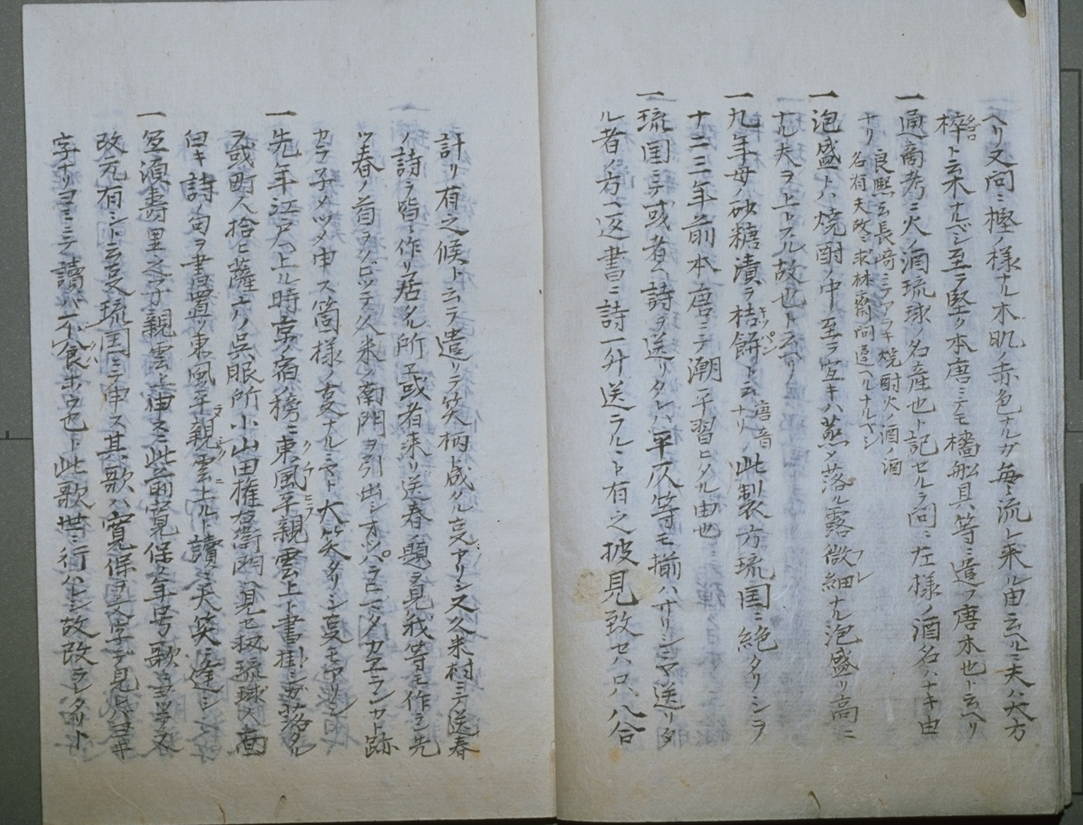 ヘリ又問ニ樫ノ様ナル木肌ノ赤色ナルガ毎ニ流レ来ル由云ヘルニ夫ハ大方
梓ト云木ナルベシ至ヲ堅ク本唐ニテモ檣船具等ニ遣フ唐木也ト云ヘリ
一通商考ニ火ノ酒琉球ノ名産也ト記セルヲ問ニ左様ノ酒名ハナキ由
ナリ
良熙云長崎ニアラキ焼酎火ノ酒ノ酒
名有夫故ニ求林斎問違ヘルナルベシ
一泡盛トハ焼酎ノ中至ヲ宜キハ蒸シテ落ル露微細ナル泡盛リ高ニ
ナル夫ヲ上トスル故也ト云ヘリ
一九年母ノ砂糖漬ヲ桔餅ト云唐音ナリ此製方琉国ニ絶タリシヲ
十二三年前本唐ニテ潮平習ヒタル由也
一琉国ニテ或者ヘ詩ヲ送リタルニ平仄等モ揃ハサリシニヤ送リタ
ル者ノ方ヘ返書ニ詩一升送ラルト有之披見致セハ只八合
計リ有之候ト云テ遣リテ笑柄ト成タル亥アリシ又久米村ニテ送春
ノ詩ヲ皆々作リ居タル所エ或者来リ送春ノ題ヲ見我等モ作ラン先
ツ春ノ首ヲ
久米ノ南門ヲ引出シ
跡
カラ子メツメ申ス箇様ノ亥ナルニヤト大笑タリシ亥モアリシ
一先年江戸ヘ上ル時京ノ宿ノ榜ニ東風平親雲上ト書掛シヲ落タル
ヲ或町人拾ヒ薩ナノ呉服所小山田権右衛門ヘ見セ扨琉球人ハ面
白キ詩句ヲ書置ツ東風平親雲上ルト讀ミ大笑ニ逢シ
一宜湾寿里之子親雲上申スニ此前寛保ト年号
改元有シト云亥琉国ニ申ス其歌ハ寛保ヲ文字デ見レバヨキ
字ナリヨミニテ讀バ不食ホウ也ト此歌世ニ行ハレシ故改ランタリト